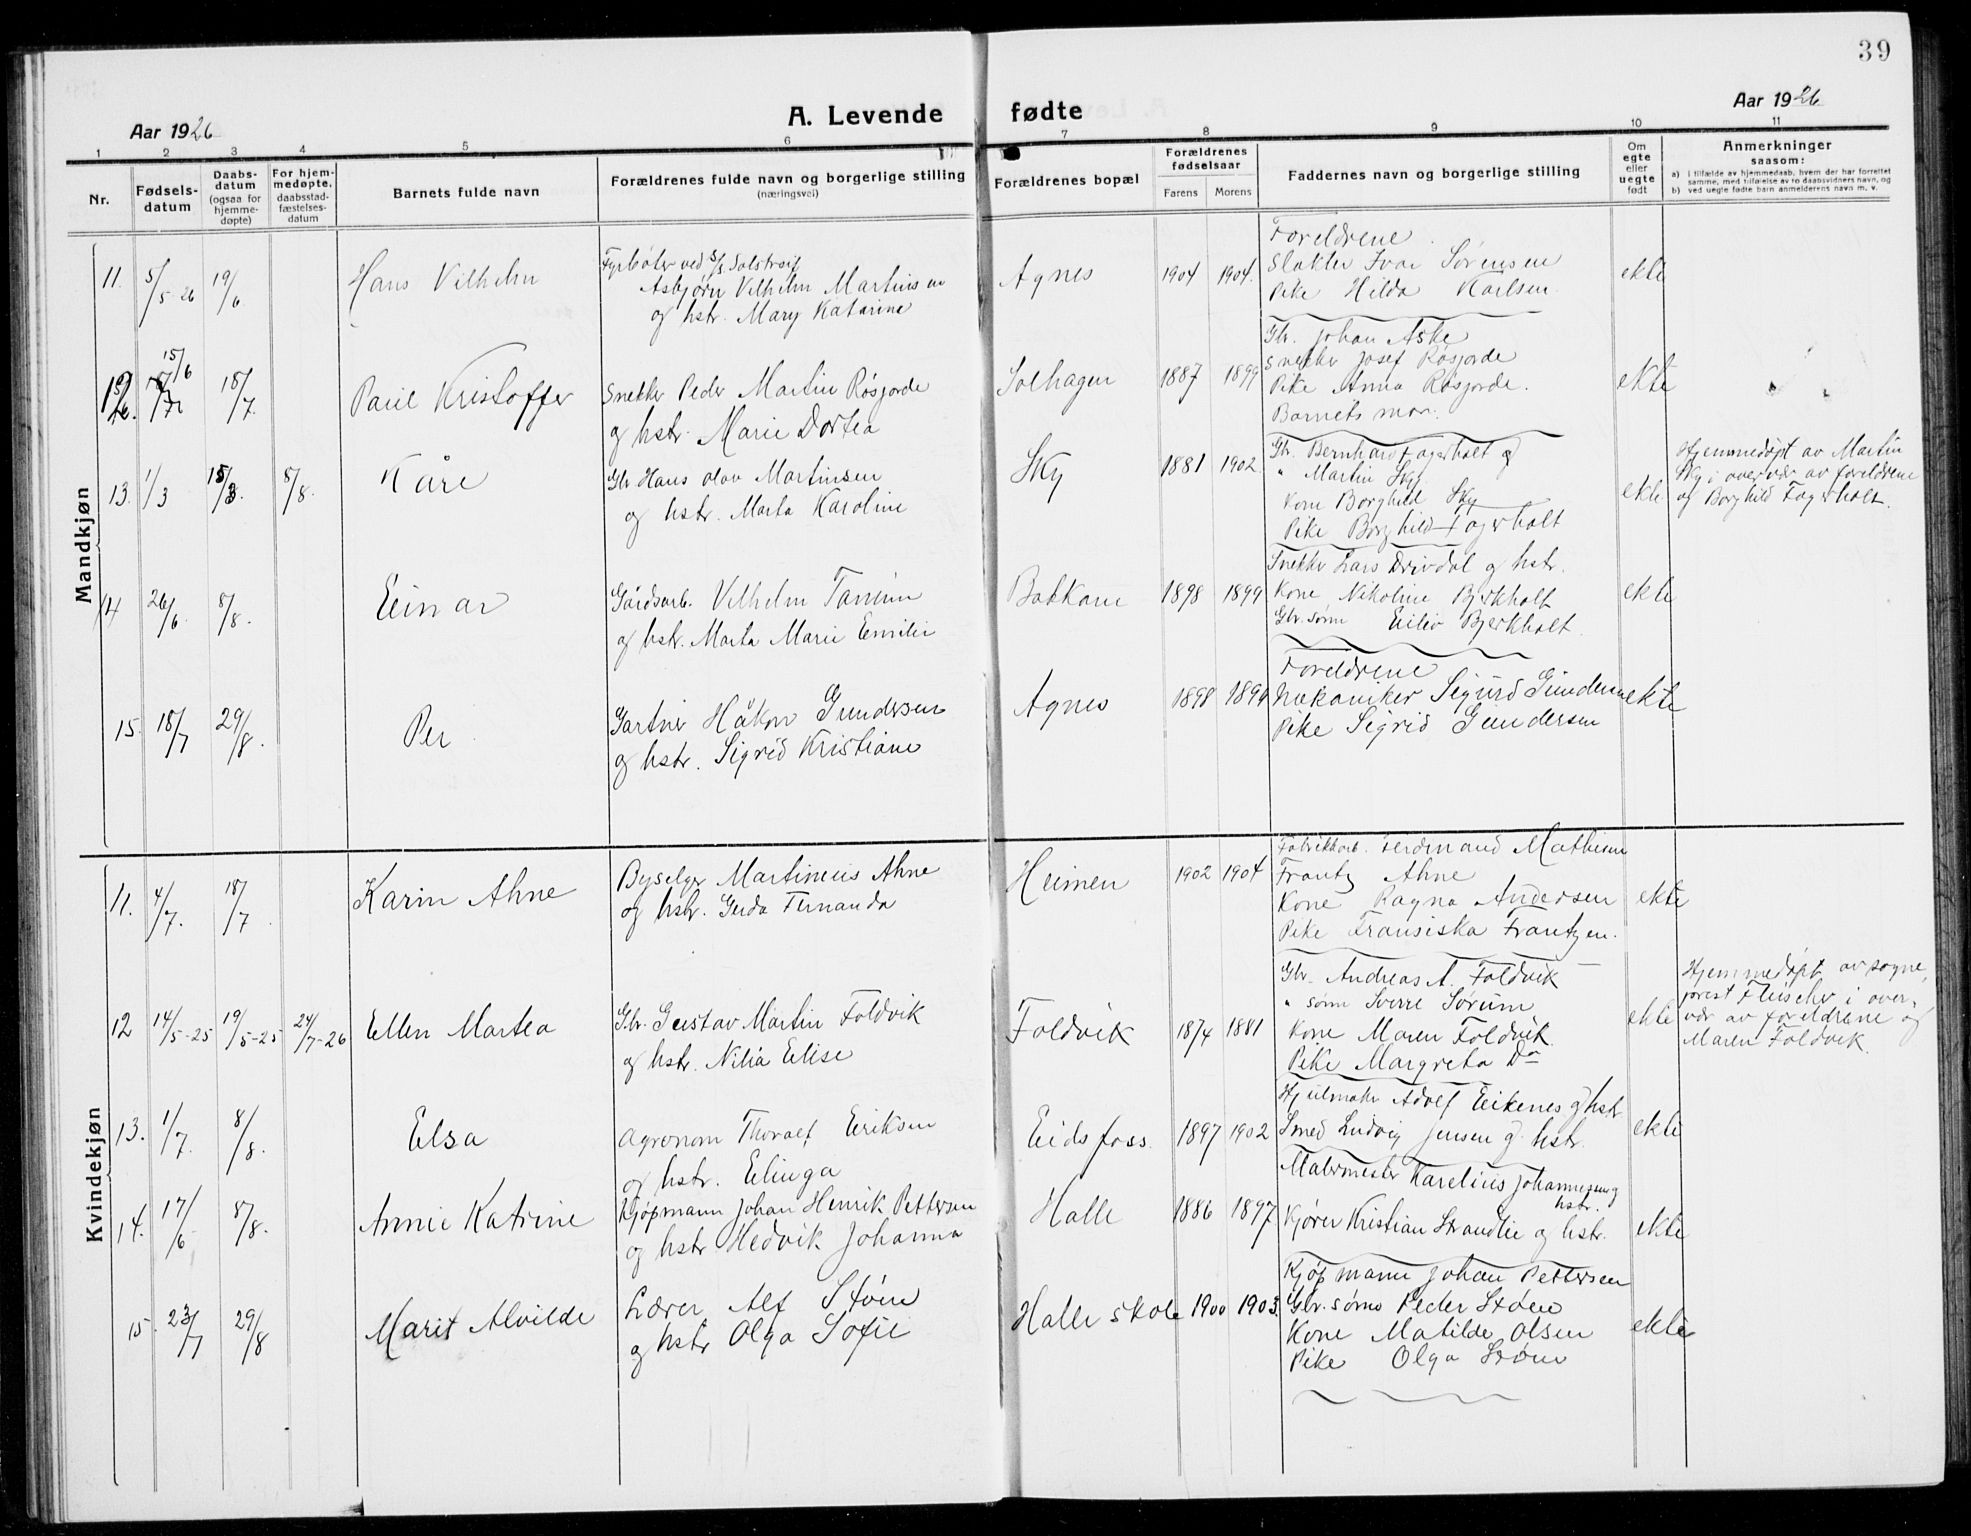 39
Aar 1926
A. Levende fødte
Aar 1926
1 2 3 4 5 6 7 8 9 10 11
Nr.
Fødsels-
datum
Daabs-
datum
(ogsaa for
hjemme-
døpte)
For hjem-
medøpte,
daabsstad-
fæstelses-
datum
Barnets fulde navn
Forældrenes fulde navn og borgerlige stilling
(næringsvei)
Forældrenes bopæl
Forældrenes
fødselsaar
Farens Morens
Faddernes navn og borgerlige stilling
Om
egte
eller
uegte
født
Anmerkninger
saasom:
a) i tilfælde av hjemmedaab, hvem der har forrettet
samme, med tilføielse av to daabsvidners navn, og
b) ved uegte fødte barn anmelderens navn m. v.
Mandkjøn
11. 5/5-26 19/6 Hans Vilhelm
Fyrbøter ved S/S Salstraif
Asbjørn Vilhelm Martinsen
og hstr. Mary Katarine
Agnes 1904 1904.
Foreldrene
Slakter Ivar Sørensen
Pike Hilda Karlsen
ekte
12. 15/6 18/7. Paul Kristoffer
Snekker Peder Martin Røsjorde
og hstr. Marie Dortea
Solhagen 1887 1899
Gbr. Johan Aske
Snekker Josef Røsjorde
Pike Anna Røsjorde.
Barnets mor.
ekte
13. 1/3 15/3. 8/8. Kåre
Gbr Hans Olav Martinsen
og hstr. Marta Karoline
Sky 1881 1902
Gbr. Bernhard Fagerholt og
" Martin Sky.
Kone Borghild Sky
Pike Borghild Fagerholt
ekte
Hjemmedøpt av Martin
Sky i overvær av foreldrene
og Borghild Fagerholt.
14 26/6 8/8. Einar
Gårdsarb. Vilhelm Tanum
og hstr. Marta Marie Emilie
Bakkane 1898 1899
Snekker Lars Drivdal og hstr.
Kone Nikoline Bjerkholt
Gbr. sønn Eiliv Bjerkholt.
ekte
15. 18/7 29/8. Per
Gartner Håkon Gundersen
og hstr. Sigrid Kristiane
Agnes 1898 1894
Foreldrene
Mekaniker Sigurd Gundersen
Pike Sigrid Gundersen
ekte
Kvindekjøn
11. 4/7. 18/7. Karin Ahne
Byselger Martineus Ahne
og hstr. Gerda Fernanda
Heimen 1902 1904
Fabrikkarb. Ferdinand Mathisen
Frantz Ahne
Kone Ragna Andersen
Pike Fransiska Frantzen.
ekte
12 14/5-25 19/5-25 24/7-26 Ellen Martea
Gbr. Gustav Martin Foldvik
og hstr. Nilia Elise
Foldvik 1874 1881
Gbr. Andreas A. Foldvik
" sønn Sverre Sørum
Kone Maren Foldvik.
Pike Margreta Do
ekte
Hjemmedøpt av sogne
prest Fleischer i over-
vær av foreldrene og
Maren Foldvik.
13. 1/7. 8/8. Elsa
Agronom Thoralf Eriksen
og hstr. Elinga
Eidsfoss. 1897 1902
Hjulmaker Adolf Eikenes og hstr
Smed Ludvig Jensen og hstr.
ekte
14. 17/6 8/8. Annie Katrine
Kjøpmann Johan Henrik Pettersen
og hstr Hedvik Johanna
Halle 1886 1897
Malermester Karelius Johannesen og
hstr.
Kjører Kristian Strandlie og hstr.
ekte
15. 23/7 29/8 Marit Alvilde
Lærer Alf Støen
og hstr Olga Sofie
Halle skole 1900 1903.
Kjøpmann Johan Pettersen
Gbr. sønn Peder Støen
Kone Matilde Olsen
Pike Olga Støen
ekte